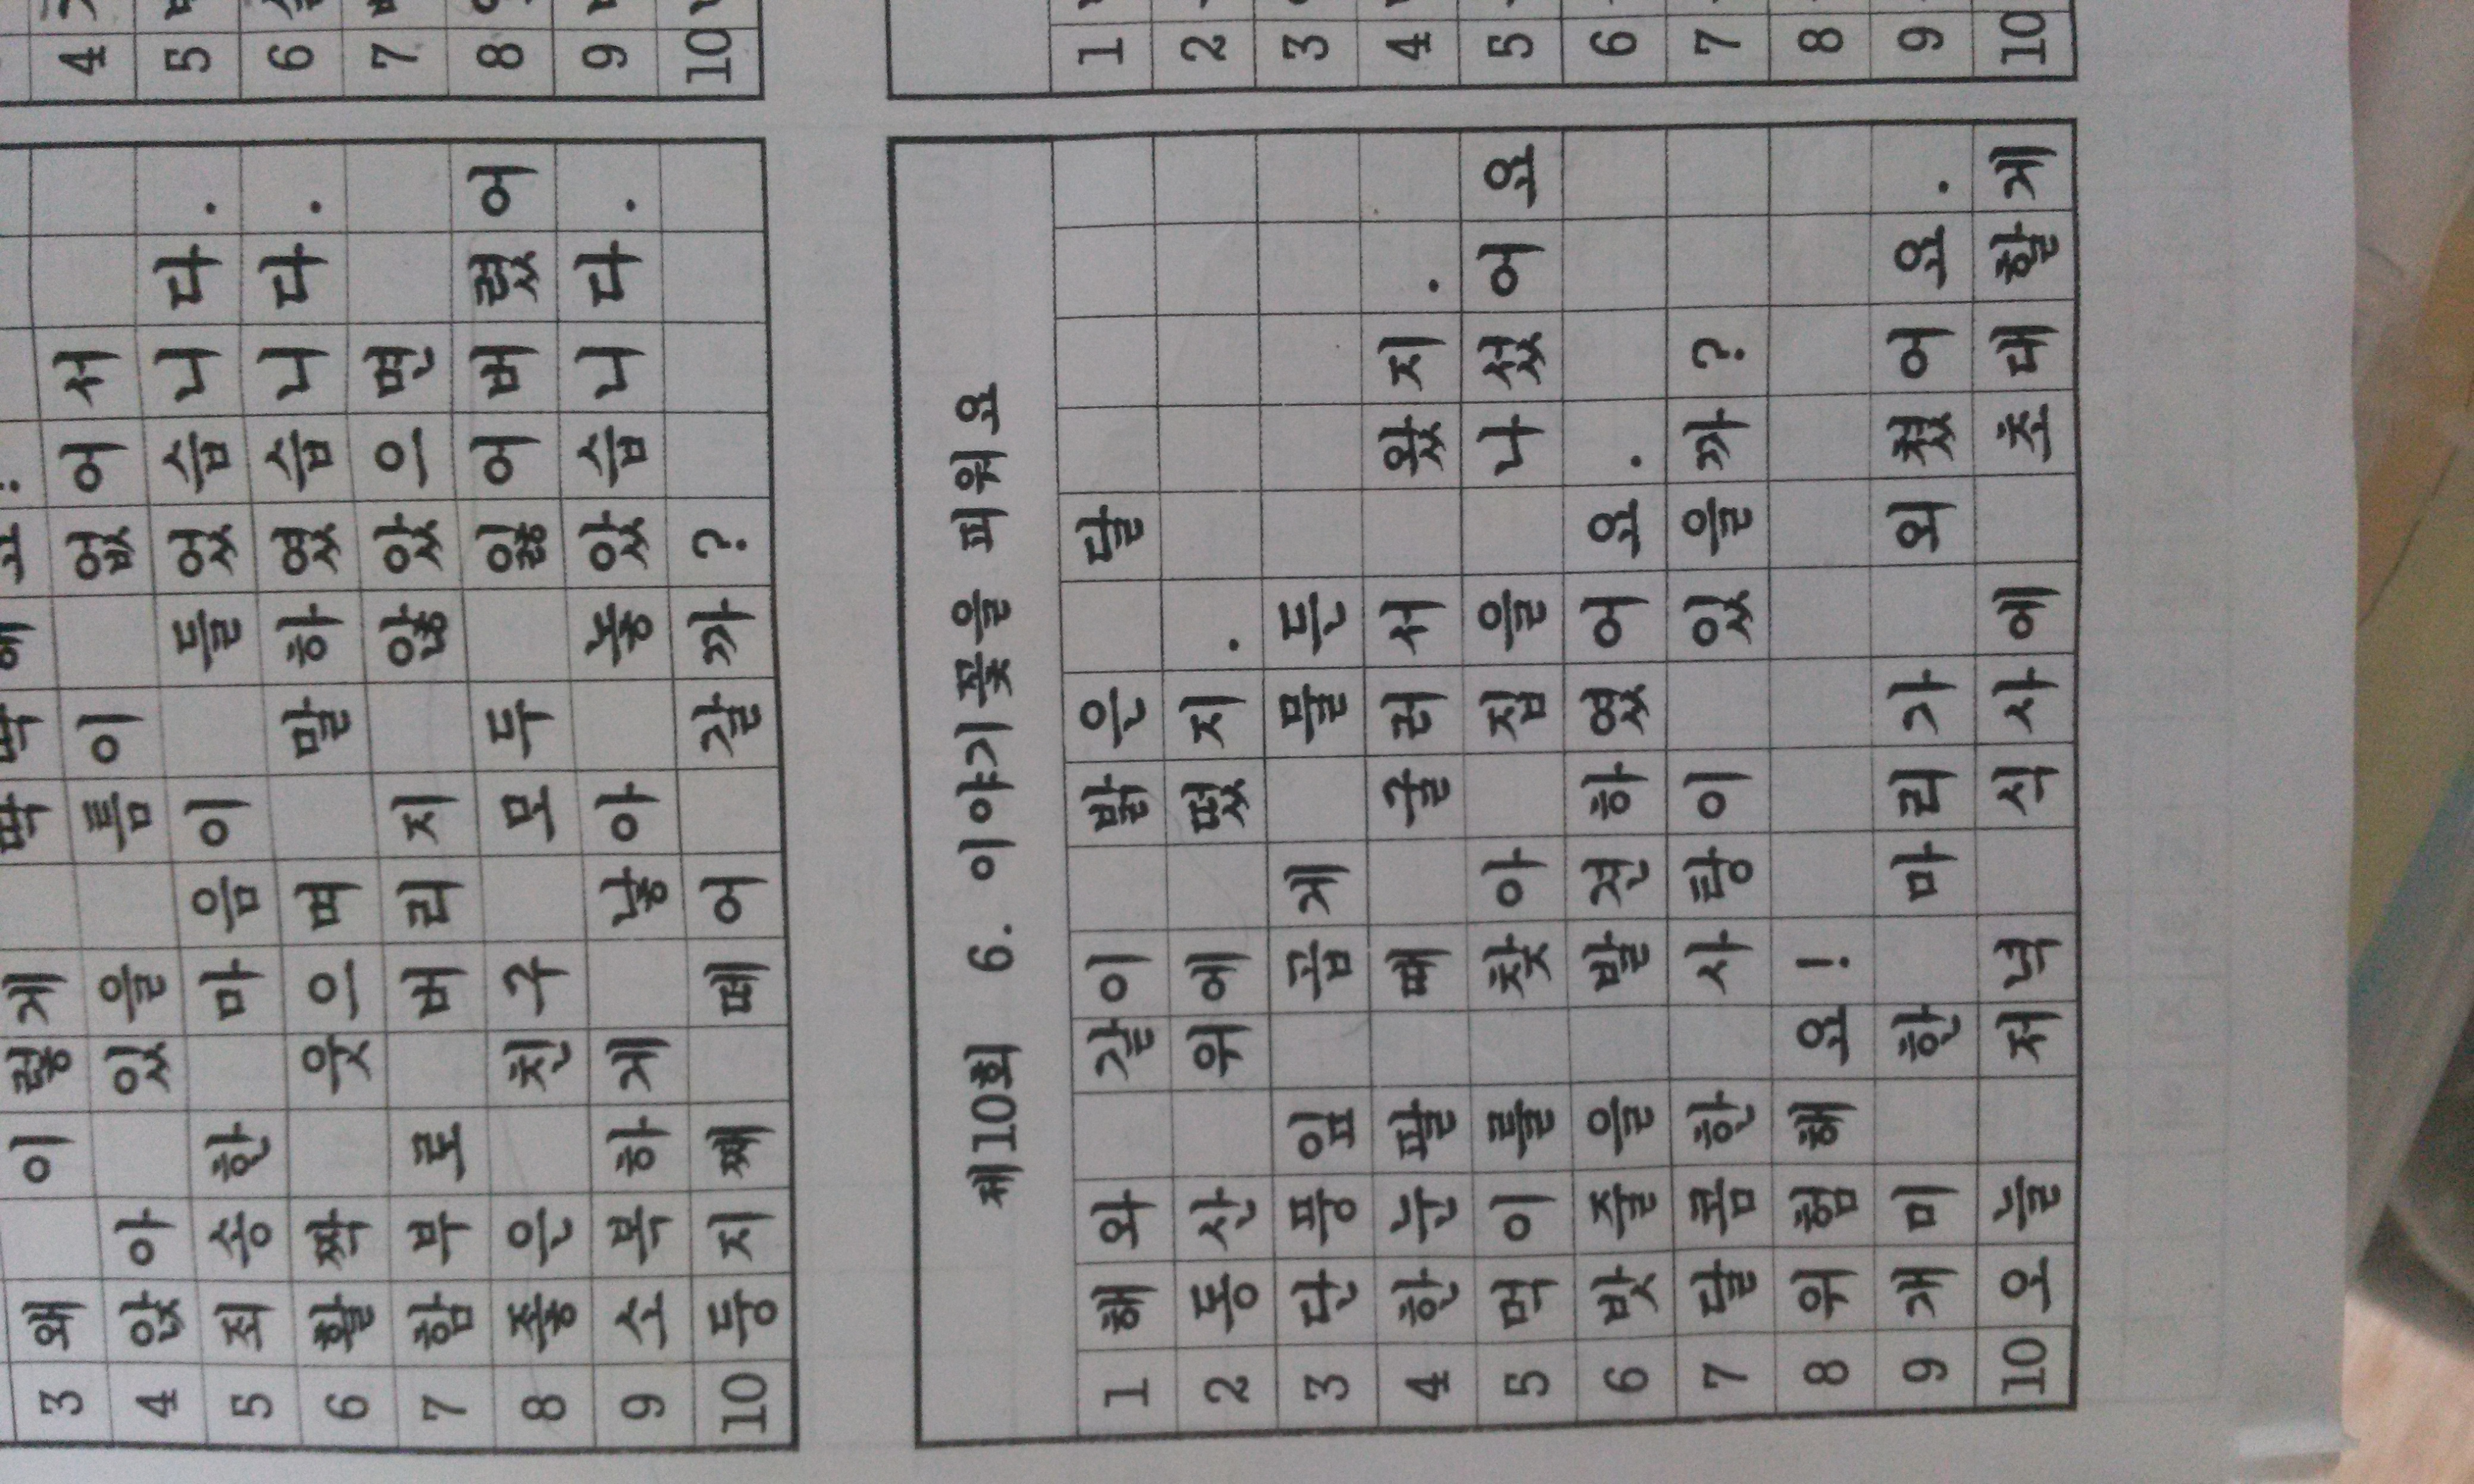 3 왜 이렇게
4 앉아 있을 틈이 없어서
5 죄송한 마음이 들었습니다.
6 활짝 웃으며 말하였습니다.
7 함부로 버리지 않았으면
8 좋은 친구 모두 잃어버렸어
9 소복하게 낳아 놓았습니다.
10 둥지째 떼어 갈까?
제10회 6. 이야기꽃을 피워요
1 해와 같이 밝은 달
2 동산 위에 떴지.
3 단풍잎 곱게 물든
4 한눈팔 때 굴러서 왔지.
5 먹이를 찾아 집을 나섰어요
6 밧줄을 발견하였어요.
7 달콤한 사탕이 있을까?
8 위험해요!
9 개미 한 마리가 외쳤어요.
10 오늘 저녁 식사에 초대할게
4
5
6
7
8
9
10
1
2
3
4
5
6
7
8
9
10